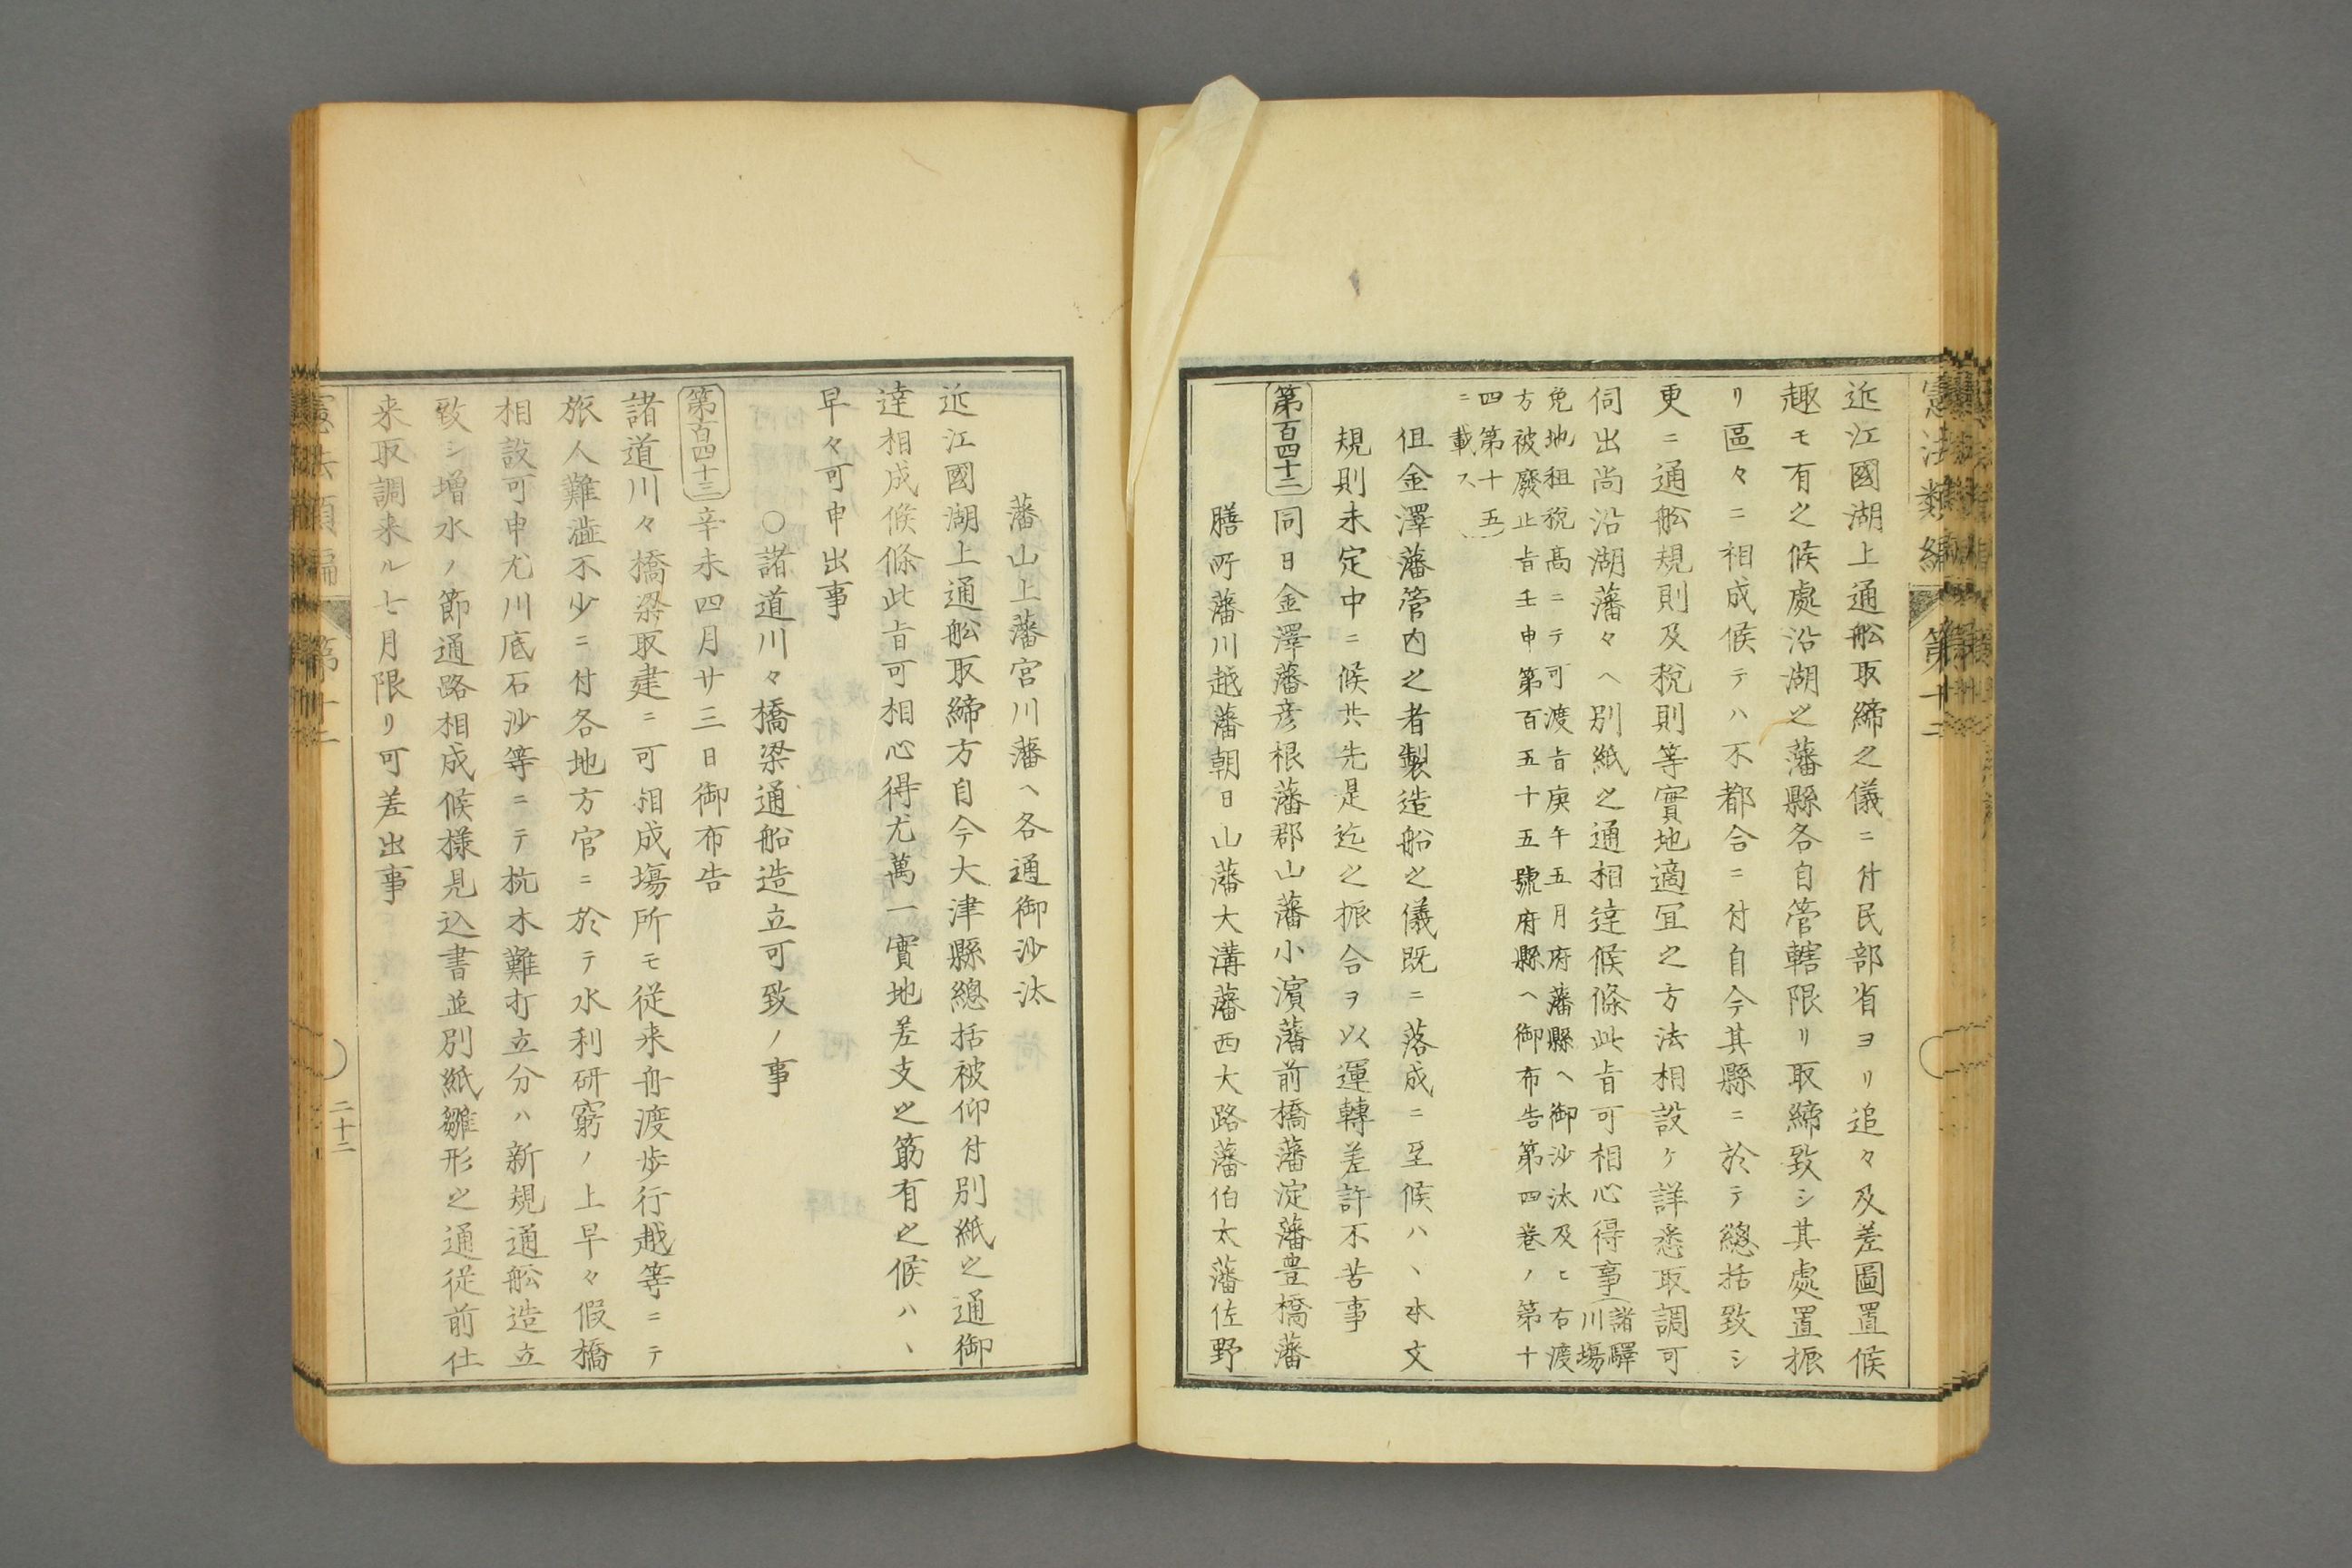 憲法類編
第十二
近江國湖上通舩取締之儀ニ付民部省ヨリ追々及差圖置候
趣モ有之候處沿湖之藩縣各自管轄限リ取締致シ其處置振
リ區々ニ相成候テハ不都合ニ付自今其縣ニ於テ總括致シ
更ニ通舩規則及税則等實地適冝之方法相設ケ詳悉取調可
伺出尚沿湖藩々ヘ別紙之通相達候條此旨可相心得事(諸驛
川場
免地租税髙ニテ可渡旨庚午五月府藩縣ヘ御沙汰及ヒ右渡
方被廢止旨壬申第百五十五號府縣ヘ御布告第四巻ノ第十
四第十五)
ニ載ス
伹金澤藩管内之者製造船之儀既ニ落成ニ至候ハヽ本文
規則未定中ニ候共先是迄之振合ヲ以運轉差許不苦事
第百四十二同日金澤藩彦根藩郡山藩小濱藩前橋藩淀藩豊橋藩
膳所藩川越藩朝日山藩大溝藩西大路藩伯太藩佐野
藩山上藩宮川藩ヘ各通御沙汰
近江國湖上通舩取締方自今大津縣總括被仰付別紙之通御
達相成候條此旨可相心得尤萬一實地差支之筋有之候ハヽ
早々可申出事
○諸道川々橋梁通船造立可致ノ事
第百四十三辛未四月廿三日御布告
諸道川々橋梁取建ニ可相成塲所モ従来舟渡歩行越等ニテ
旅人難澁不少ニ付各地方官ニ於テ水利研窮ノ上早々假橋
相設可申尤川底石沙等ニテ杭木難打立分ハ新規通舩造立
致シ増水ノ節通路相成候様見込書並別紙雛形之通従前仕
来取調来ル七月限リ可差出事
憲法類編
第十二
二十二